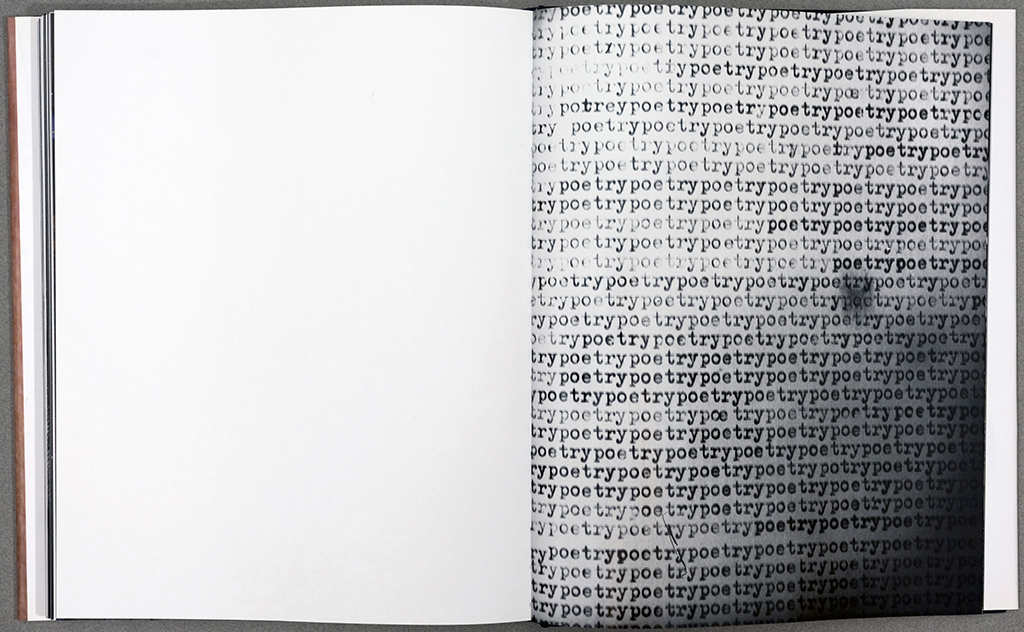 rypoetrypoetrypoetrypoetrypoetrypoetrypo
trypoetrypoetrypoetrypoetrypoetrypoetrypoe
trypoetrypoetrypoetrypoetrypoetrypoetrypoe
trypoetrypoetrypoetrypoetrypoetrypoetrypoe
trypoetrypoetrypoetrypoetrypoetrypoetrypoe
try potreypoetrypoetrypoetrypoetrypoetrypoe
try poetrypoetrypoetrypoetrypoetrypoetryp
poetrypoetrypoetrypoetrypoetrypoetrypoetry
poetrypoetrypoetrypoetrypoetrypoetrypoetry
trypoetrypoetrypoetrypoetrypoetrypoetrypoe
trypoetrypoetrypoetrypoetrypoetrypoetrypoe
trypoetrypoetrypoetrypoetrypoetrypoetrypoe
trypoetrypoetrypoetrypoetrypoetrypoetrypoe
trypoetrypoetrypoetrypoetrypoetrypoetrypoe
ypoetrypoetrypoetrypoetrypoetrypoetrypoet
etrypoetrypoetrypoetrypoetrypoetrypoetryp
rypoetrypoetrypoetrypoetrypoetrypoetrypoe
oetrypoetrypoetrypoetrypoetrypoetrypoetry
trypoetrypoetrypoetrypoetrypoetrypoetrypoe
trypoetrypoetrypoetrypoetrypoetrypoetrypoe
ypoetrypoetrypoetrypoetrypoetrypoetrypoet
trypoetrypoetrypoe trypoetrypoetrypoetrypoe
trypoetrypoetrypoetrypoetrypoetrypoetrypo
poetrypoetrypoetrypoetrypoetrypoetrypoetry
rypoetrypoetrypoetrypoetrypoetrypoetrypo
trypoetrypoetrypoetrypoetrypoetrypoetrypo
trypoetrypoetrypoetrypoetrypoetrypoetrypo
rypoetrypoetrypoetrypoetrypoetrypoetry
rypoetrypoetrypoetrypoetrypoetrypoetry
trypoetrypoetrypoetrypoetrypoetrypoetry
trypoetrypoetrypoetrypoetrypoetrypoetry
trypoetrypoetrypoetrypoetrypoetrypoetry